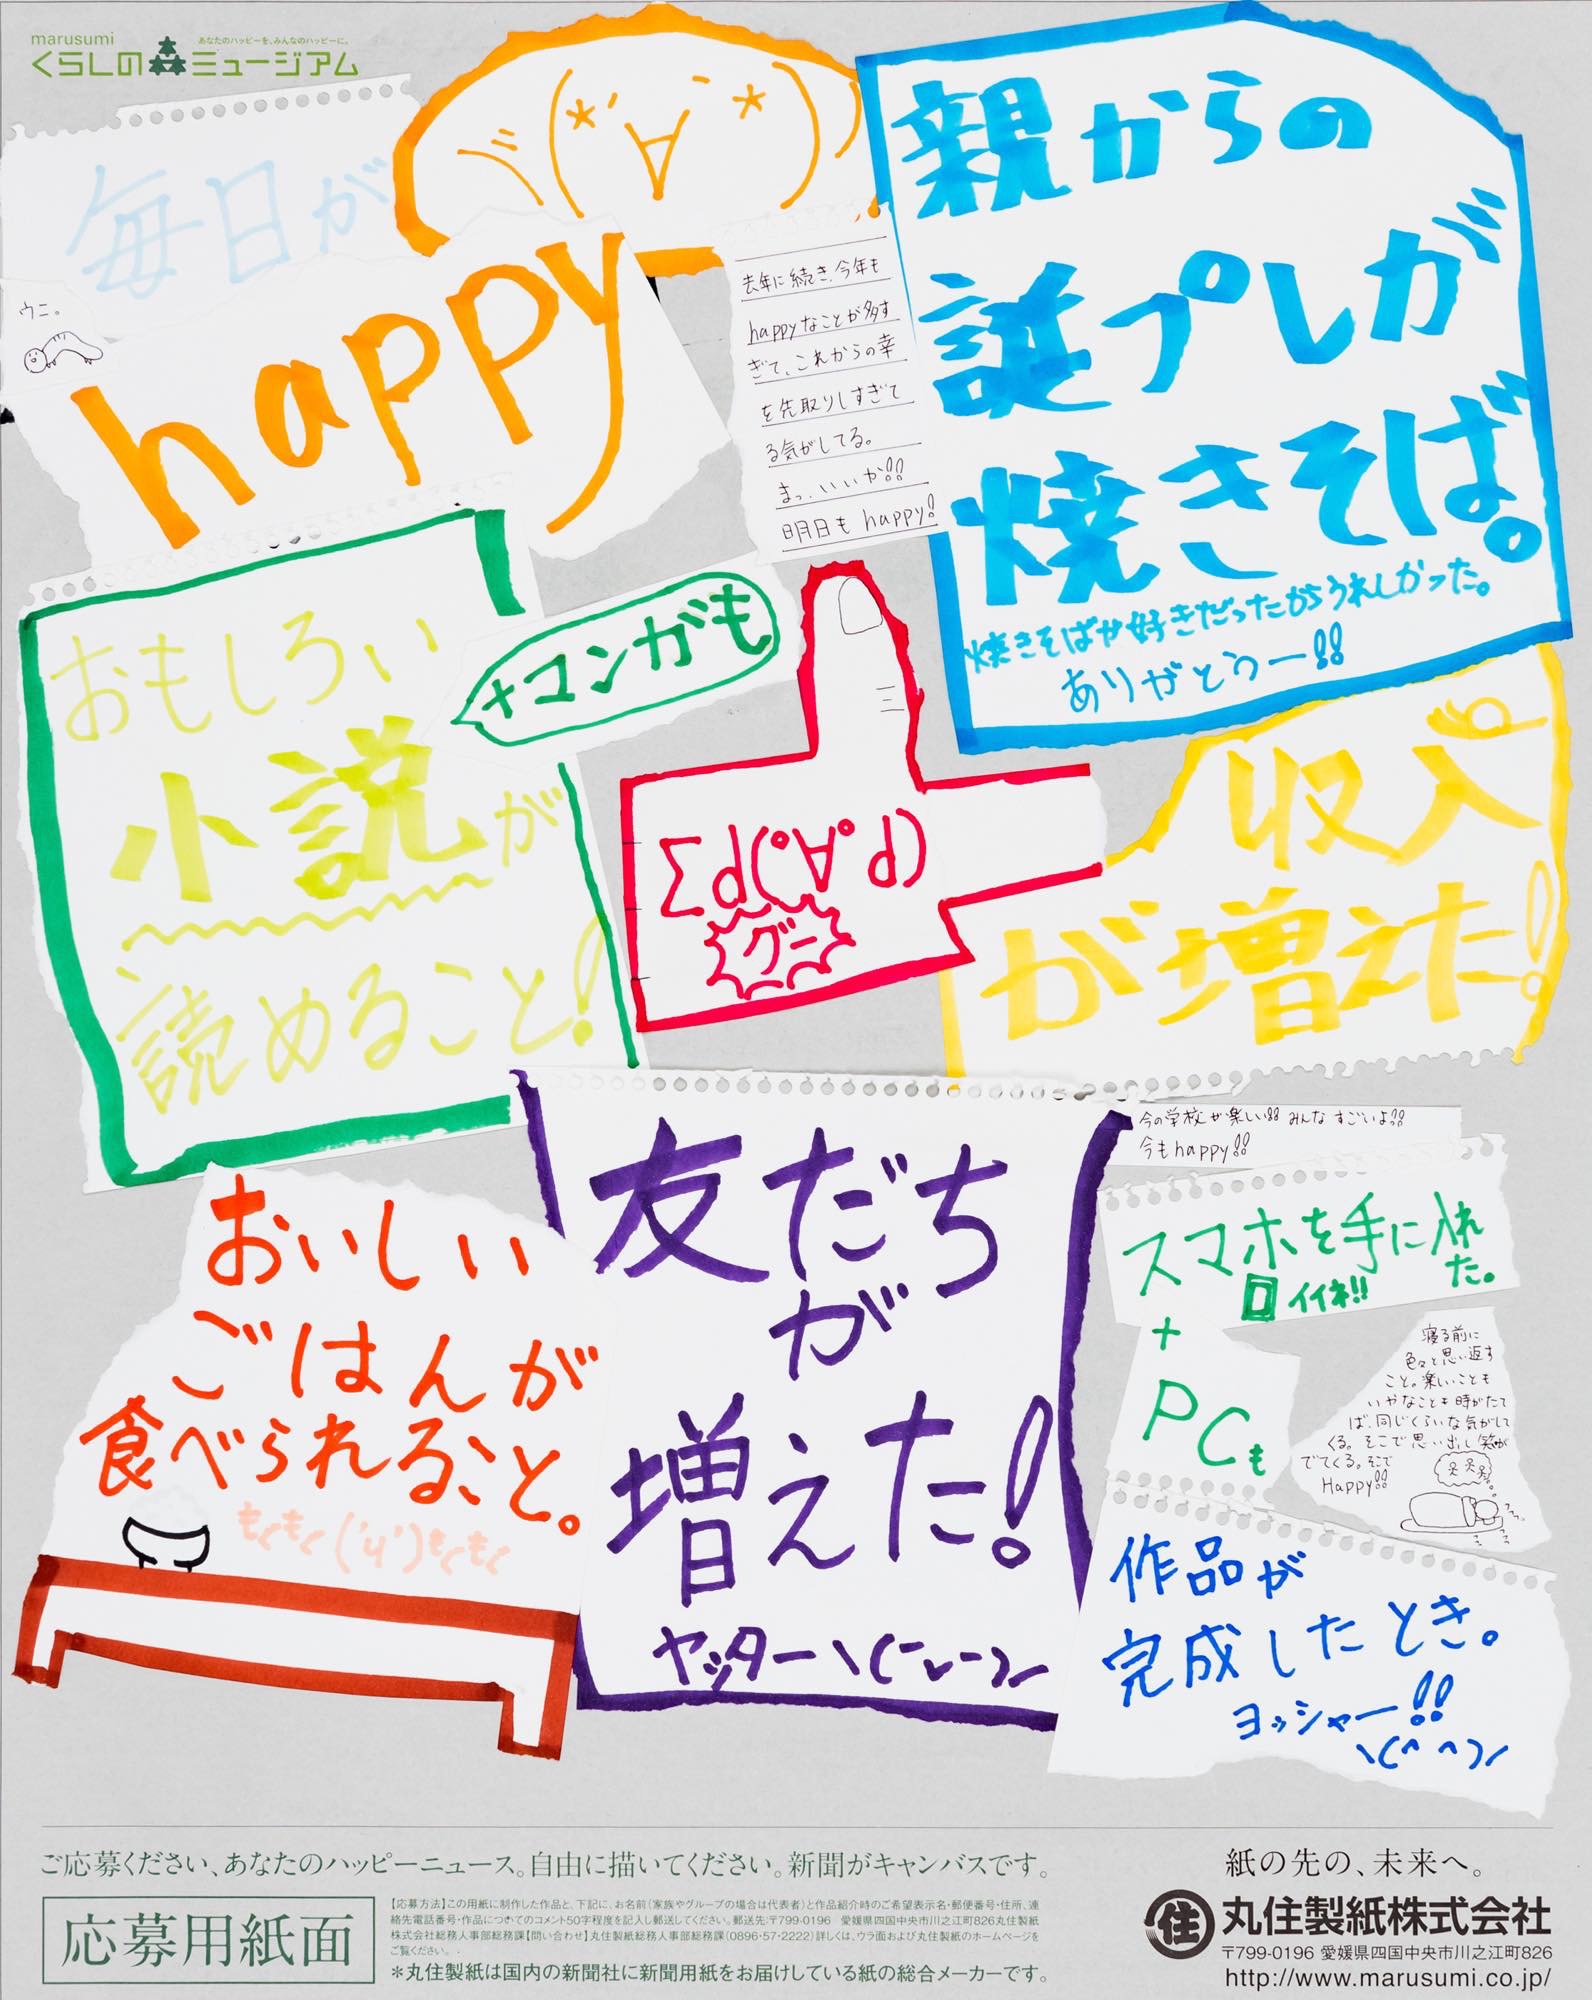 marusumi
あなたのハッピーを、みんなのハッピーに。
くらしの森ミュージアム
毎日が
happy
ウニ。
去年に続き、今年も
happyなことが多す
ぎて、これからの幸
を先取りしすぎて
る気がしてる。
まっ、いいか!!
明日も happy!
親からの
誕プレが
焼きそば。
焼きそばが好きだったからうれしかった。
ありがとうー!!
おもしろい
小説が
読めること!
+マンガも
グー
収入
が増えた!
おいしい
ごはんが
食べられること。
もくもく('ч')もくもく
友だち
が
増えた!
ヤッター \(-ᴗ-)ノ
今の学校が楽しい!! みんなすごいよ!!
今もhappy!!
スマホを手に入れ
た。
イイネ!!
+
PCも
寝る前に
色々と思い返す
こと。楽しいことも
いやなことも時がたて
ば、同じくらいな気がして
くる。そこで思い出し笑が
でてくる。そこで
Happy!!
作品が
完成したとき。
ヨッシャー!!
\(^ ^)ノ
ご応募ください、あなたのハッピーニュース。自由に描いてください。新聞がキャンバスです。
応募用紙面
【応募方法】この用紙に制作した作品と、下記に、お名前(家族やグループの場合は代表者)と作品紹介時のご希望表示名・郵便番号・住所、連
絡先電話番号・作品についてのコメント50字程度を記入し郵送してください。郵送先:〒799-0196 愛媛県四国中央市川之江町826丸住製紙
株式会社総務人事部総務課【問い合わせ】丸住製紙総務人事部総務課(0896・57・2222)詳しくは、ウラ面および丸住製紙のホームページを
ご覧ください。
*丸住製紙は国内の新聞社に新聞用紙をお届けしている紙の総合メーカーです。
紙の先の、未来へ。
住 丸住製紙株式会社
〒799-0196 愛媛県四国中央市川之江町826
http://www.marusumi.co.jp/